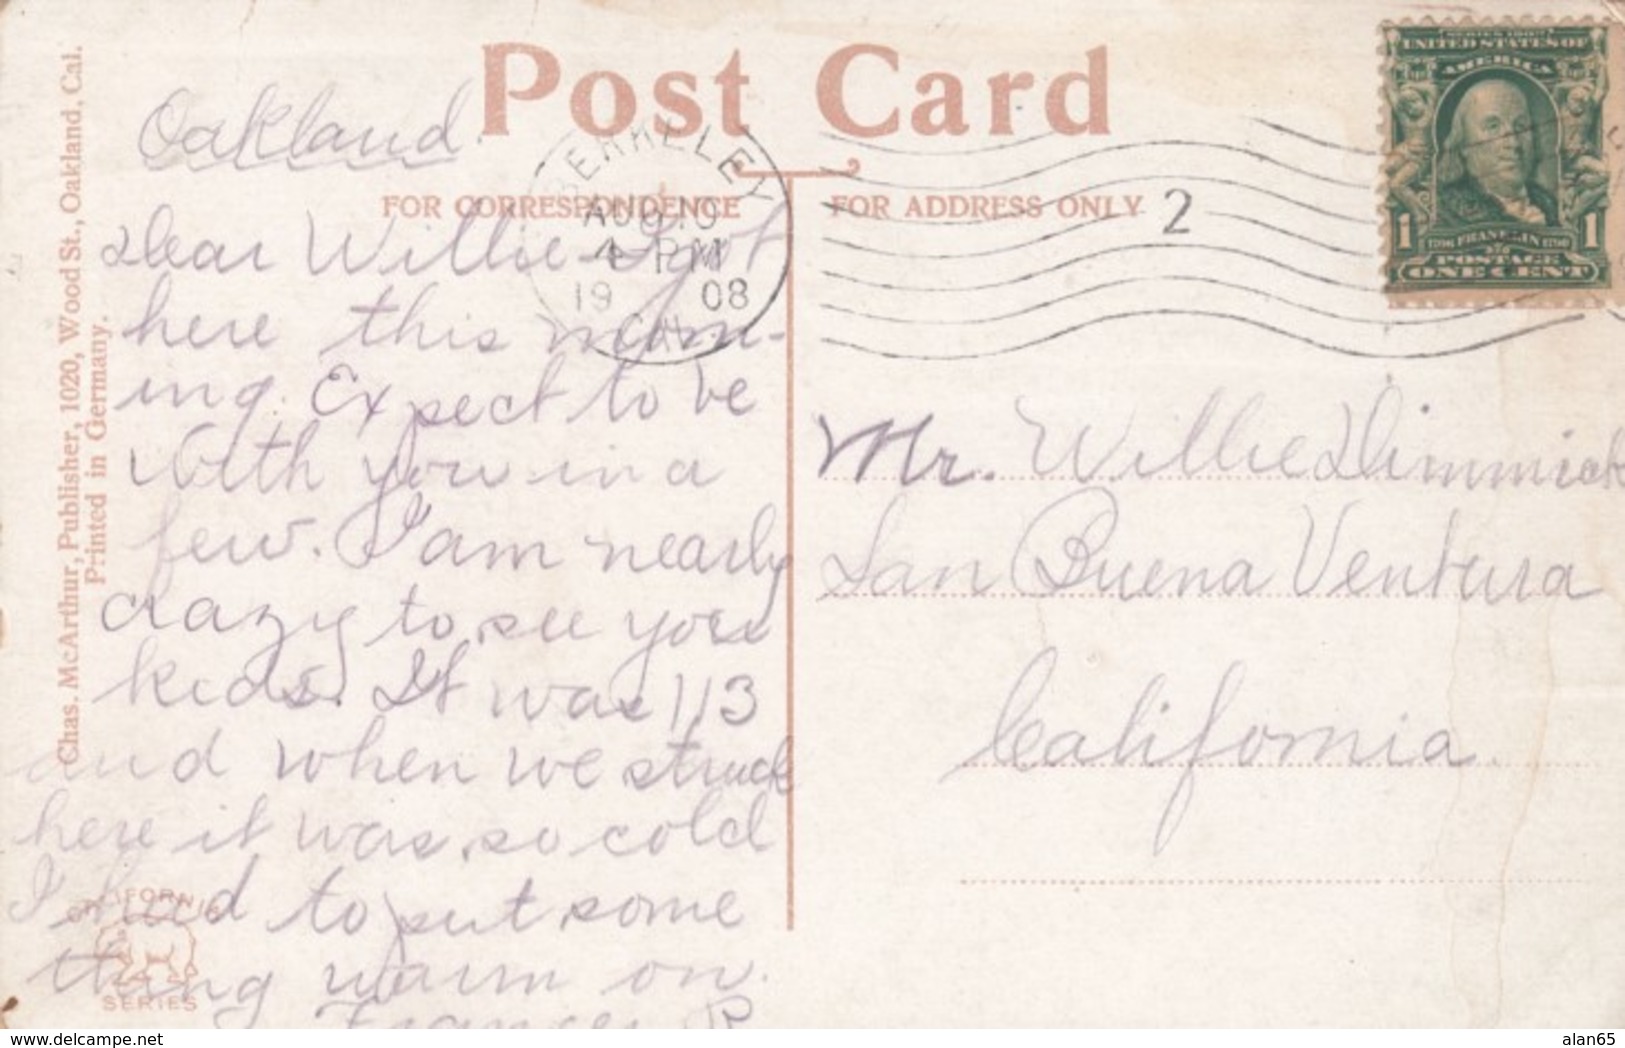 Post Card
FOR CORRESPONDENCE
FOR ADDRESS ONLY
Chas. McArthur, Publisher, 1020, Wood St., Oakland, Cal.
Printed in Germany.
BERKELEY
AUG 10
4 PM
19 08
CAL.
2
SERIES 1902
UNITED STATES OF
AMERICA
1 1706 FRANKLIN 1790 1
POSTAGE
ONE CENT
Oakland.
Dear Willie - I got
here this morn-
ing. Expect to be
with you in a
few. I am nearly
crazy to see you
kids. It was 113
and when we struck
here it was so cold
I had to put some
thing warm on.
Frances P
Mr. Willie Dimmick
San Buena Ventura
California.
CALIFORNIA
SERIES
delcampe.net
alan65